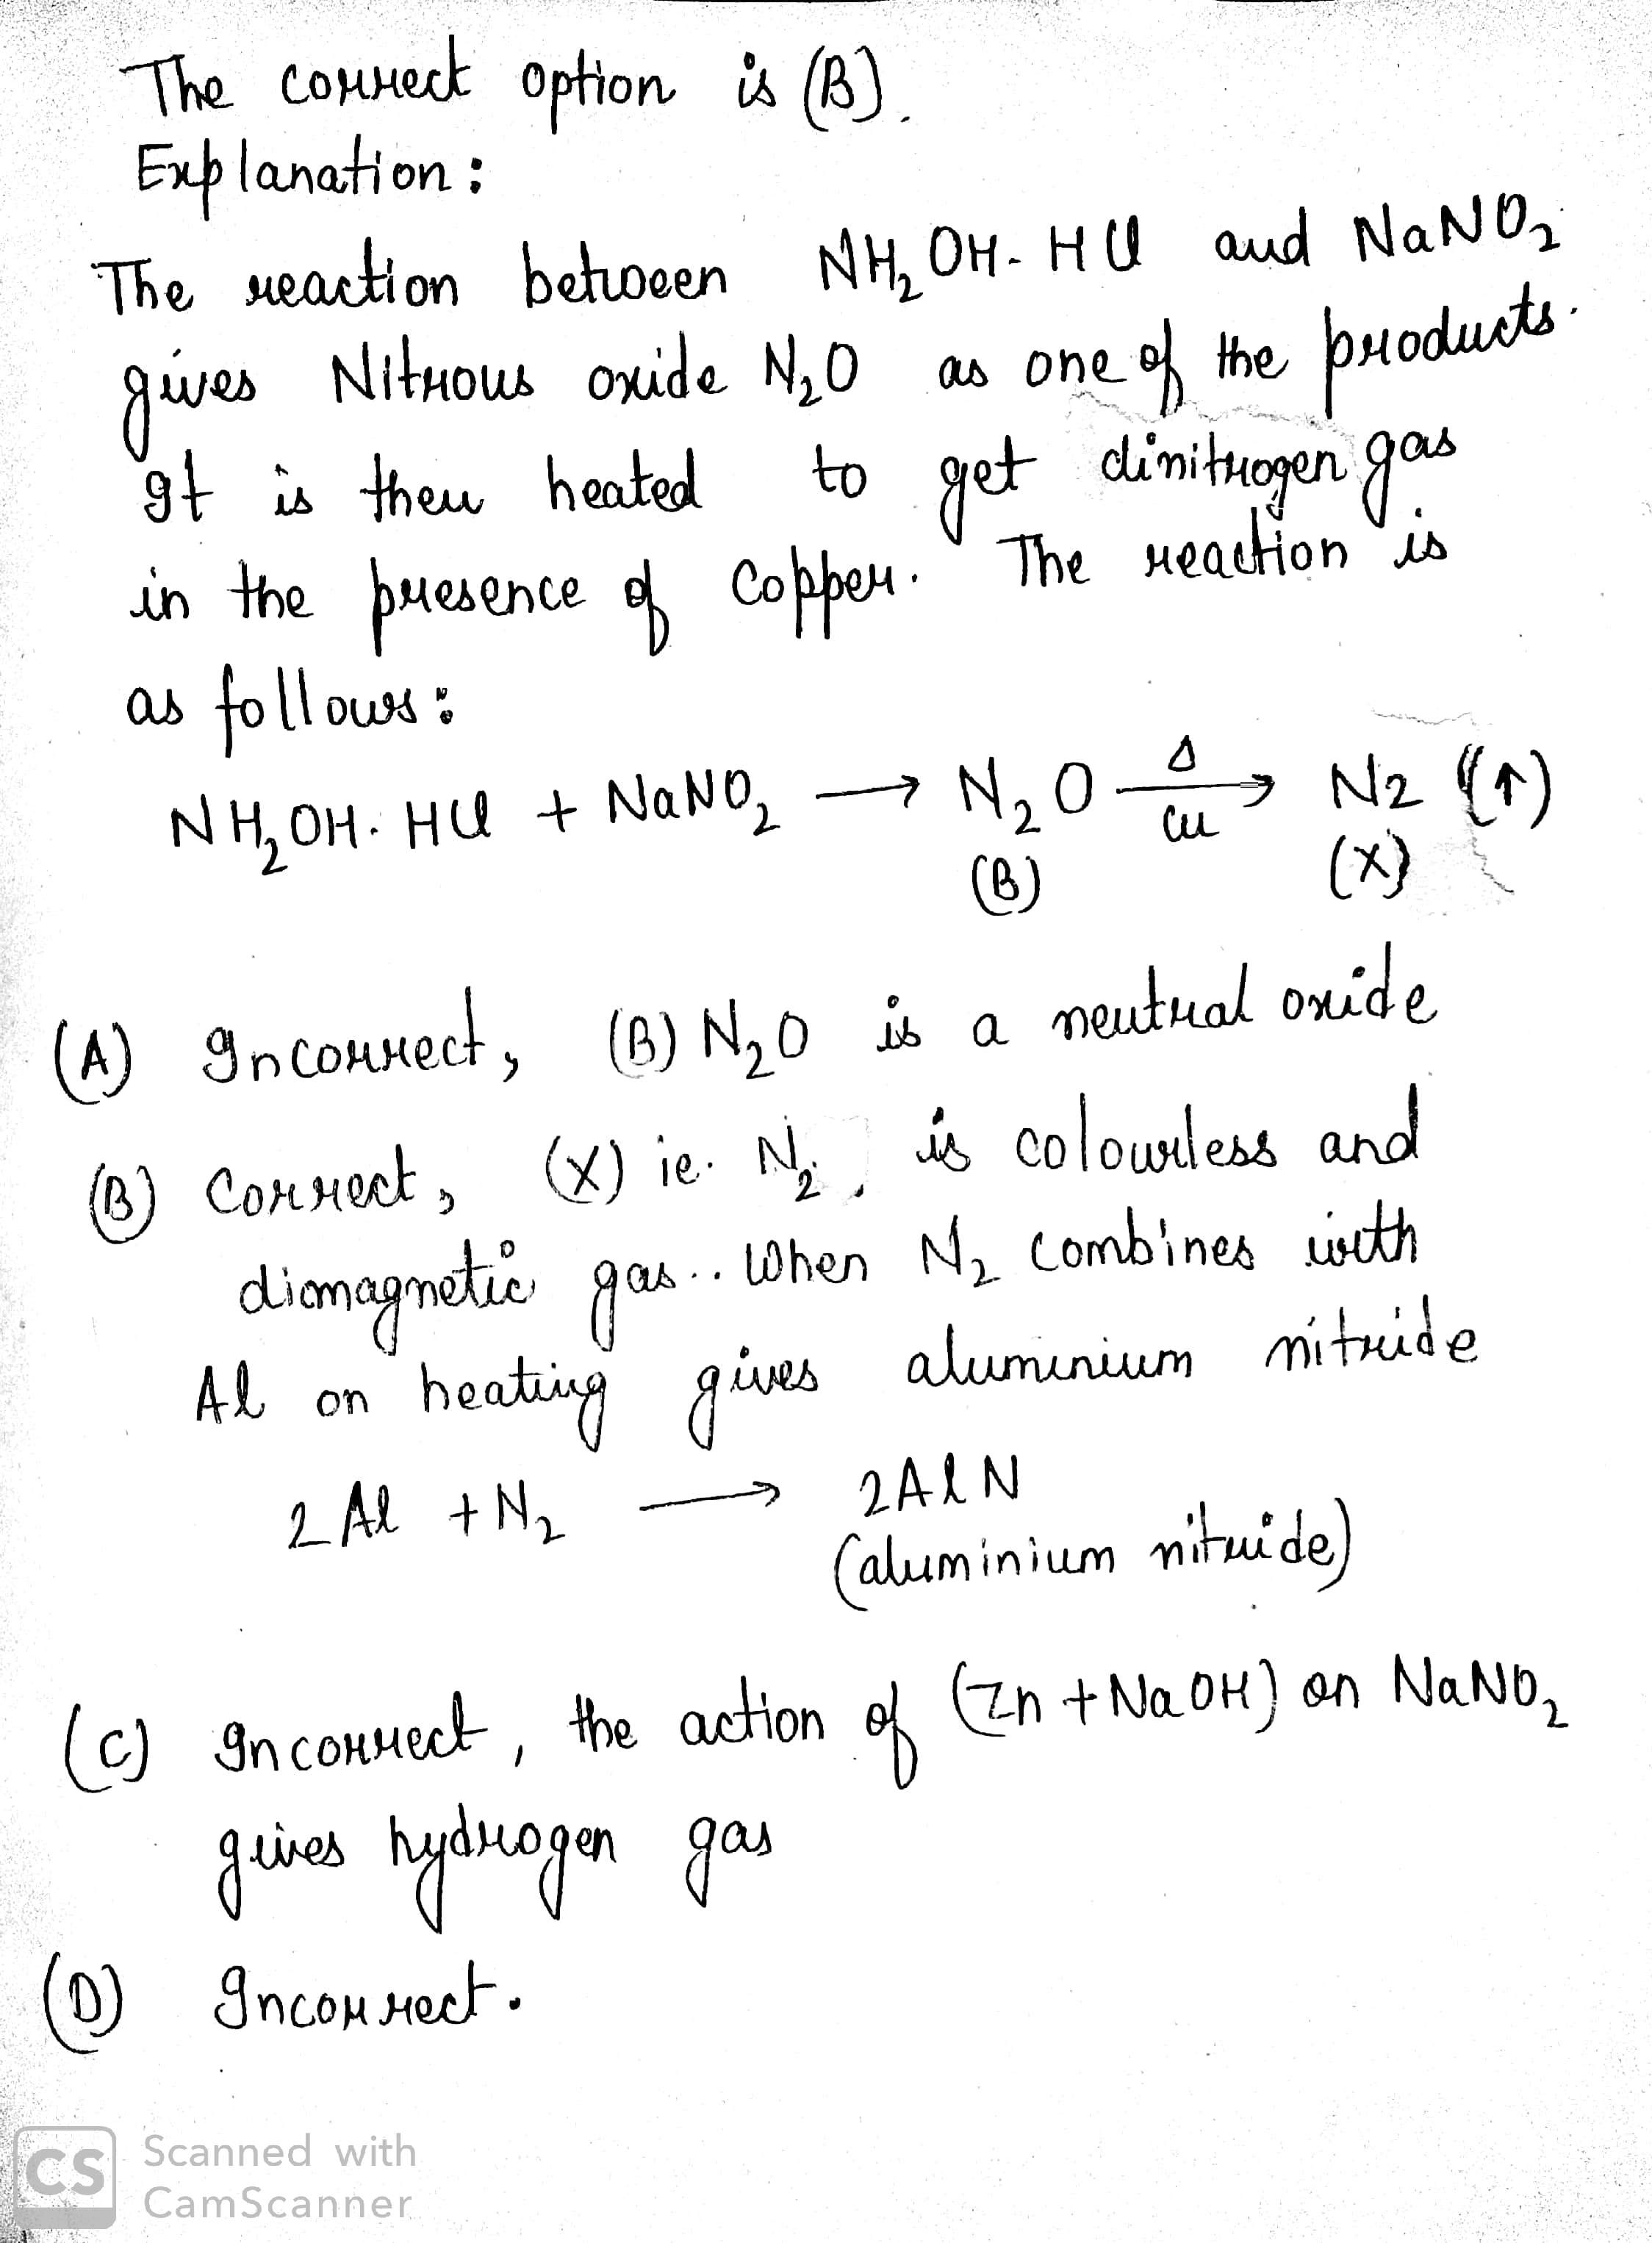 The correct option is (B).
Explanation:
The reaction between NH₂OH. HCl and NaNO₂
gives Nitrous oxide N₂O as one of the products.
It is then heated to get dinitrogen gas
in the presence of Copper. The reaction is
as follows:
NH₂OH. HCl + NaNO₂ → N₂O Δ/Cu → N2 (↑)
(B) (X)
(A) Incorrect, (B) N₂O is a neutral oxide
(B) Correct, (X) ie. N₂, is colourless and
diamagnetic gas.. When N₂ combines with
Al on heating gives aluminium nitride
2 Al + N₂ → 2AlN
(aluminium nitride)
(C) Incorrect, the action of (Zn + NaOH) on NaNO₂
gives hydrogen gas
(D) Incorrect.
CS Scanned with
CamScanner